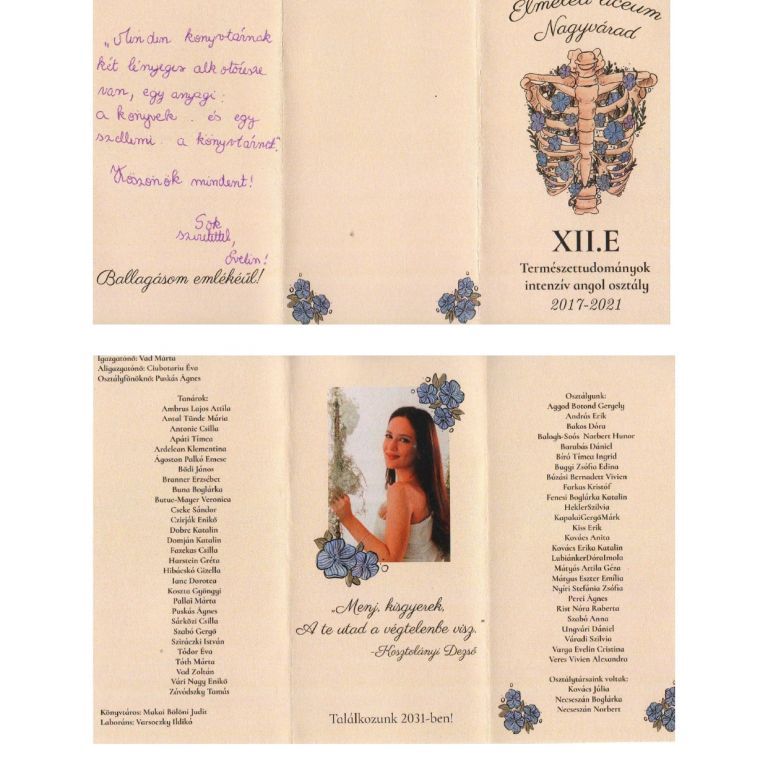 „Minden könyvtárnak
két lényeges alkotórésze
van, egy anyagi:
a könyvek . és egy
szellemi . a könyvtárnok."
Köszönök mindent!
Sok
szeretettel,
Evelin!
Ballagásom emlékéül!
Elméleti líceum
Nagyvárad
XII.E
Természettudományok
intenzív angol osztály
2017-2021
Igazgatónő: Vad Márta
Aligazgatónő: Ciubotariu Éva
Osztályfőnöknő: Puskás Ágnes
Tanárok:
Ambrus Lajos Attila
Antal Tünde Mária
Antonie Csilla
Apáti Tímea
Ardelean Klementina
Ágoston Palkó Emese
Bődi János
Branner Erzsébet
Buna Boglárka
Butuc-Mayer Veronica
Cseke Sándor
Czirják Enikő
Dobre Katalin
Domján Katalin
Fazekas Csilla
Harstein Gréta
Hibácskó Gizella
Ianc Dorotea
Koszta Gyöngyi
Pallai Márta
Puskás Ágnes
Sárközi Csilla
Szabó Gergő
Sziráczki István
Tódor Éva
Tóth Márta
Vad Zoltán
Vári Nagy Enikő
Závódszky Tamás
Könyvtáros: Makai Bölöni Judit
Laboráns: Varsoczky Ildikó
„Menj, kisgyerek,
A te utad a végtelenbe visz."
-Kosztolányi Dezső
Találkozunk 2031-ben!
Osztályunk:
Aggod Botond Gergely
András Erik
Bakos Dóra
Balogh-Soós Norbert Hunor
Barabás Dániel
Bíró Tímea Ingrid
Buggi Zsófia Edina
Búzási Bernadett Vivien
Farkas Kristóf
Fenesi Boglárka Katalin
HeklerSzilvia
KapakaGergőMárk
Kiss Erik
Kovács Anita
Kovács Erika Katalin
LubiánkerDóraImola
Mátyás Attila Géza
Márgus Eszter Emília
Nyiri Stefánia Zsófia
Perei Ágnes
Rist Nóra Roberta
Szabó Anna
Ungvári Dániel
Váradi Szilvia
Varga Evelin Cristina
Veres Vivien Alexandra
Osztálytársaink voltak:
Kovács Júlia
Necseszán Boglárka
Necseszán Norbert